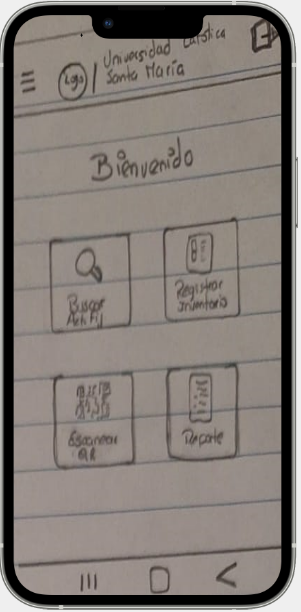 Logo
Universidad Católica
Santa María
Bienvenido
Buscar
Registrar
Inventario
Escanear
QR
Reporte